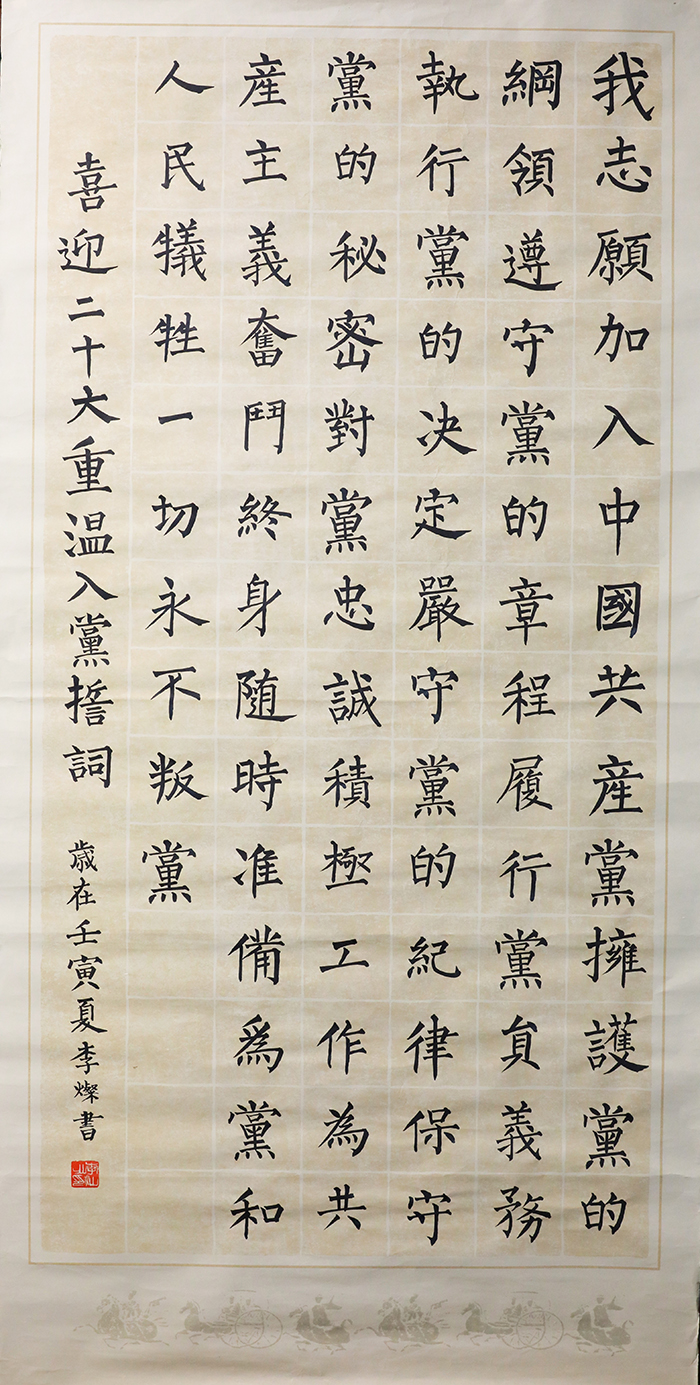 我志願加入中國共産黨擁護黨的
綱領遵守黨的章程履行黨員義務
執行黨的决定嚴守黨的紀律保守
黨的秘密對黨忠誠積極工作為共
産主義奮鬥終身随時准備為黨和
人民犠牲一切永不叛黨
喜迎二十大重温入黨誓詞
歲在壬寅夏李燦書